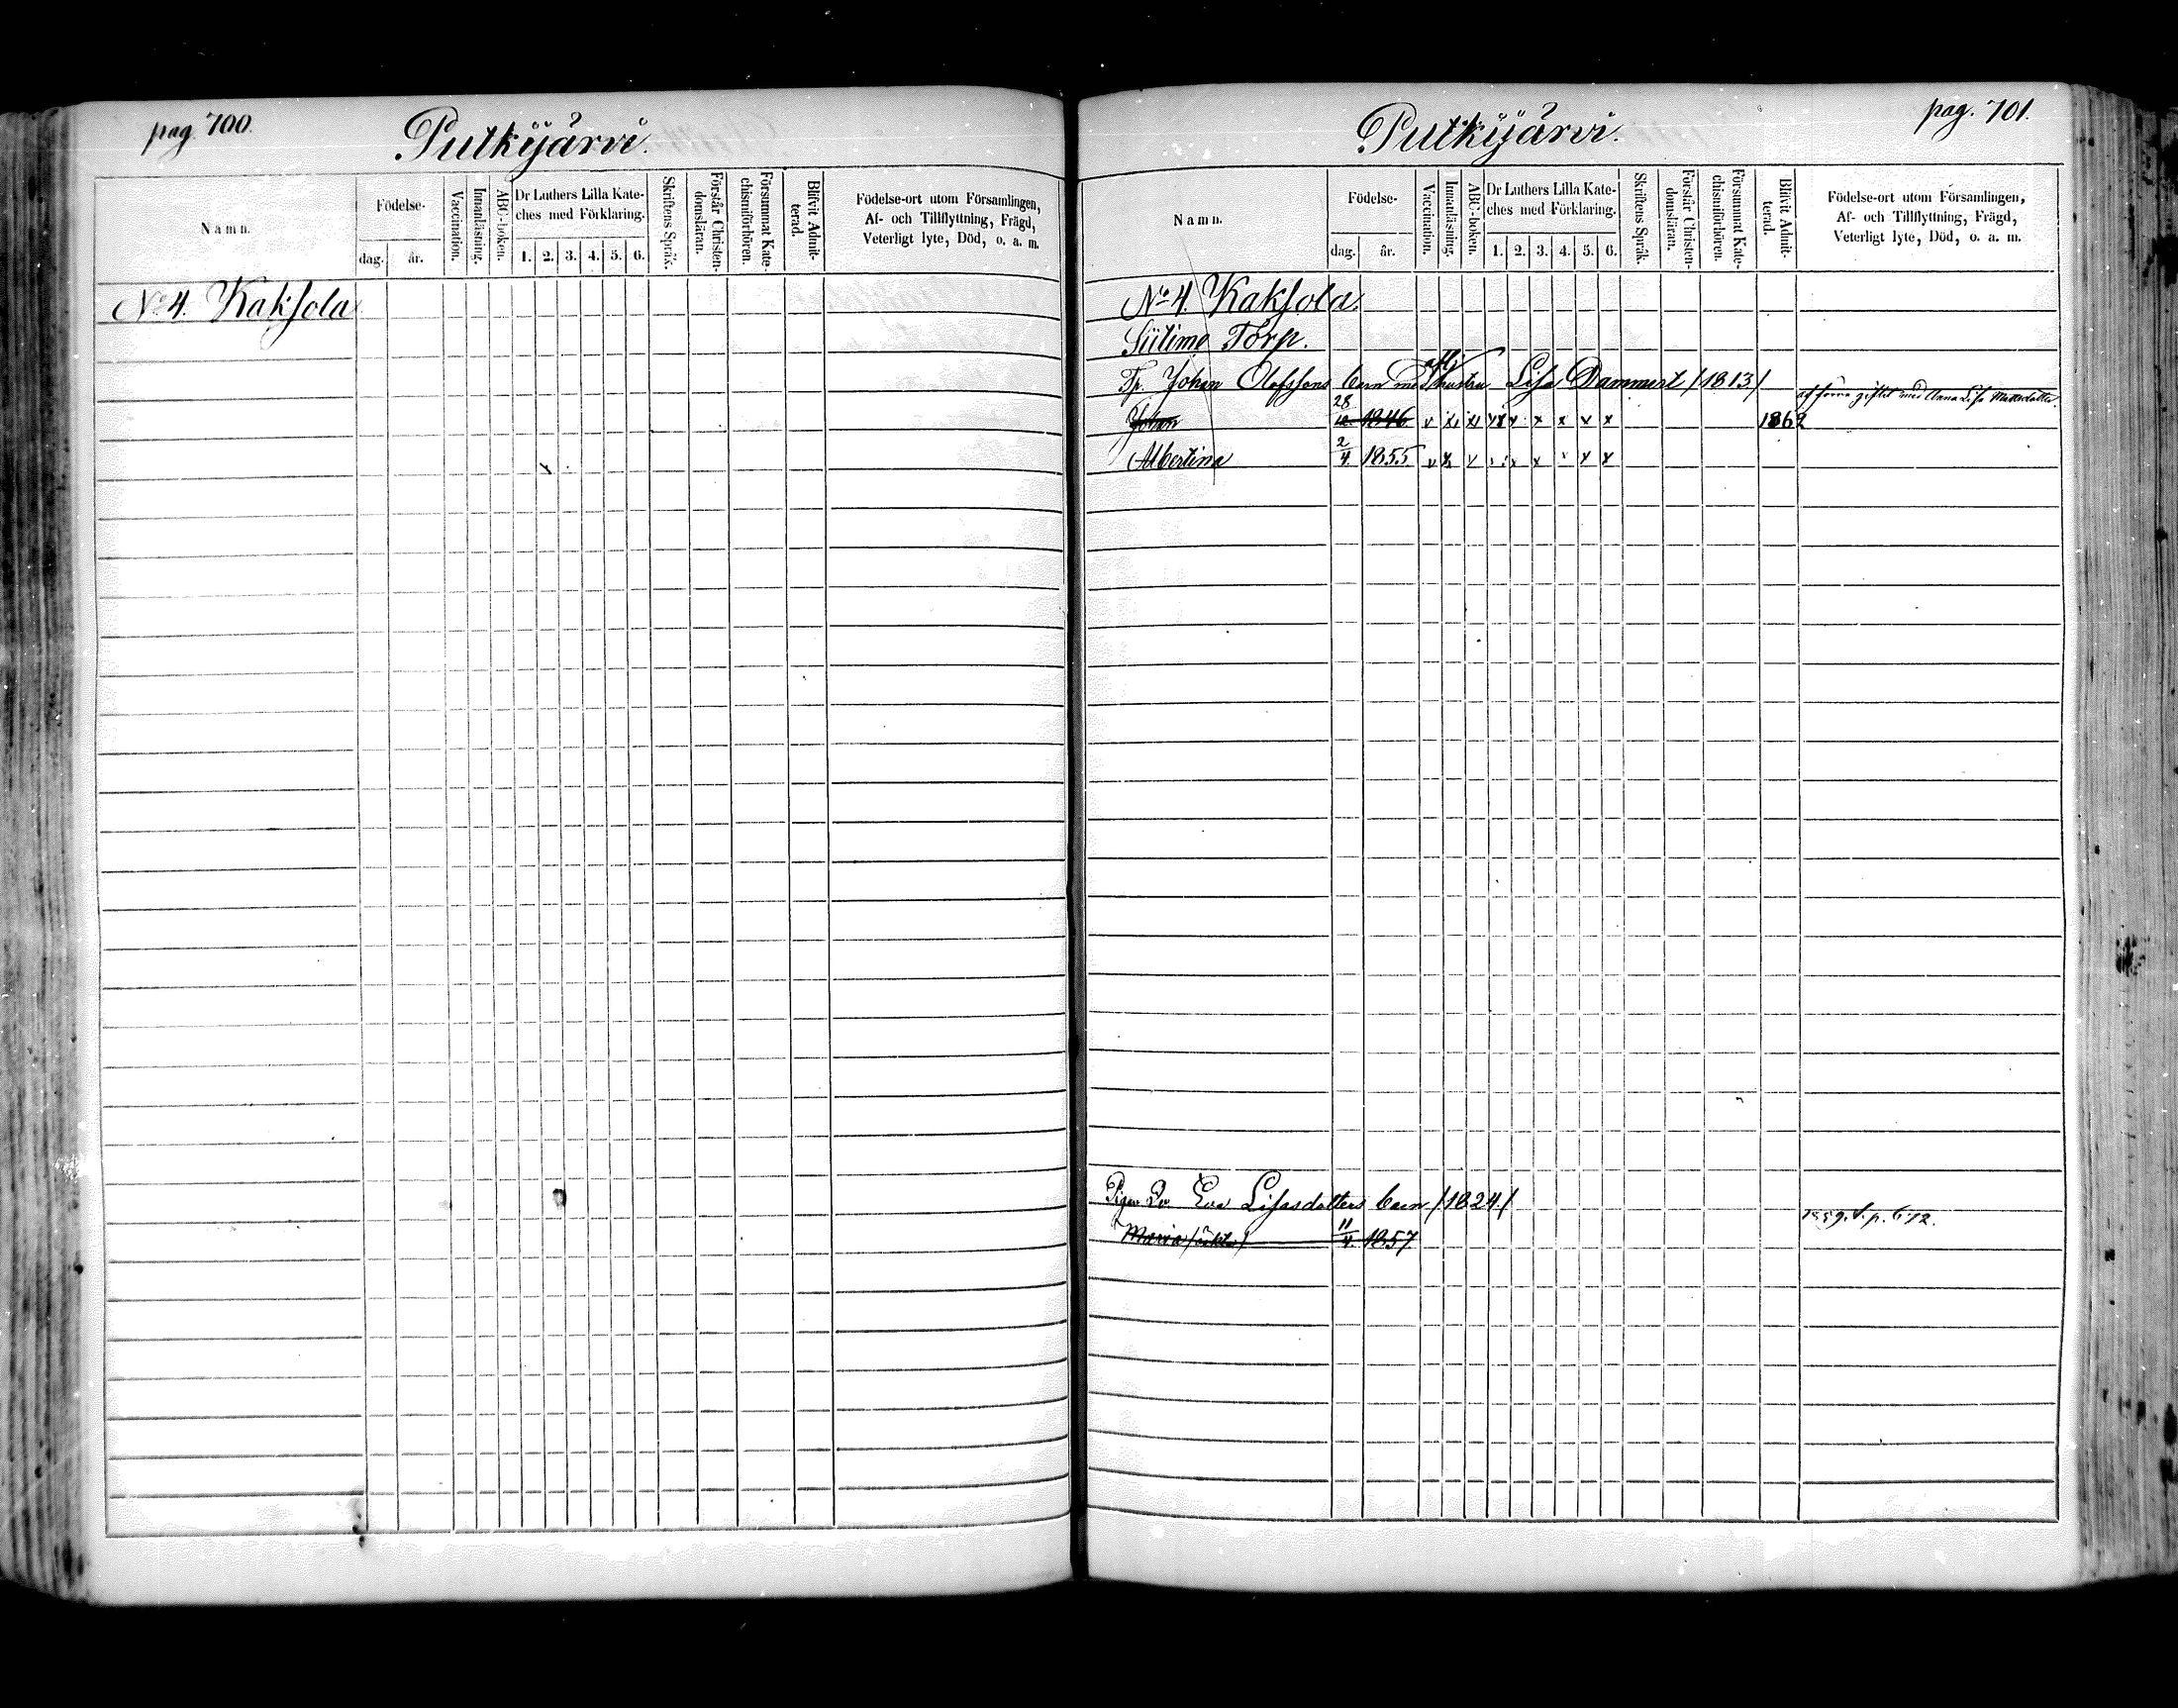 pag. 700.
Putkijärvi.
Namn.
Födelse-
dag.
år.
Vaccination.
Innanläsning.
ABC-boken.
Dr Luthers Lilla Kate-
ches med Förklaring.
1. 2. 3. 4. 5. 6.
Skriftens Språk.
Förstår Christen-
domsläran.
Försummat Kate-
chismiförhören.
Blifvit Admit-
terad.
Födelse-ort utom Församlingen,
Af- och Tillflyttning, Frägd,
Veterligt lyte, Död, o. a. m.
No 4. Kaksola
pag. 701.
Putkijärvi.
Namn.
Födelse-
dag.
år.
Vaccination.
Innanläsning.
ABC-boken.
Dr Luthers Lilla Kate-
ches med Förklaring.
1. 2. 3. 4. 5. 6.
Skriftens Språk.
Förstår Christen-
domsläran.
Försummat Kate-
chismiförhören.
Blifvit Admit-
terad.
Födelse-ort utom Församlingen,
Af- och Tillflyttning, Frägd,
Veterligt lyte, Död, o. a. m.
No 4. Kaksola.
Siitime Torp.
Tp. Johan Olofssons barn med hustru Lisa Dammert /1813/
af förra giftet med Anna Lisa Mattsdotter.
Johan 28/12 1846 v x x x x x x x x 1862
Albertina 2/4 1855 v x v x x x x x
Pigan Eva Lisasdotters barn /1824/
Maria /oäkta/ 11/4 1857 1859. t. p. 672.